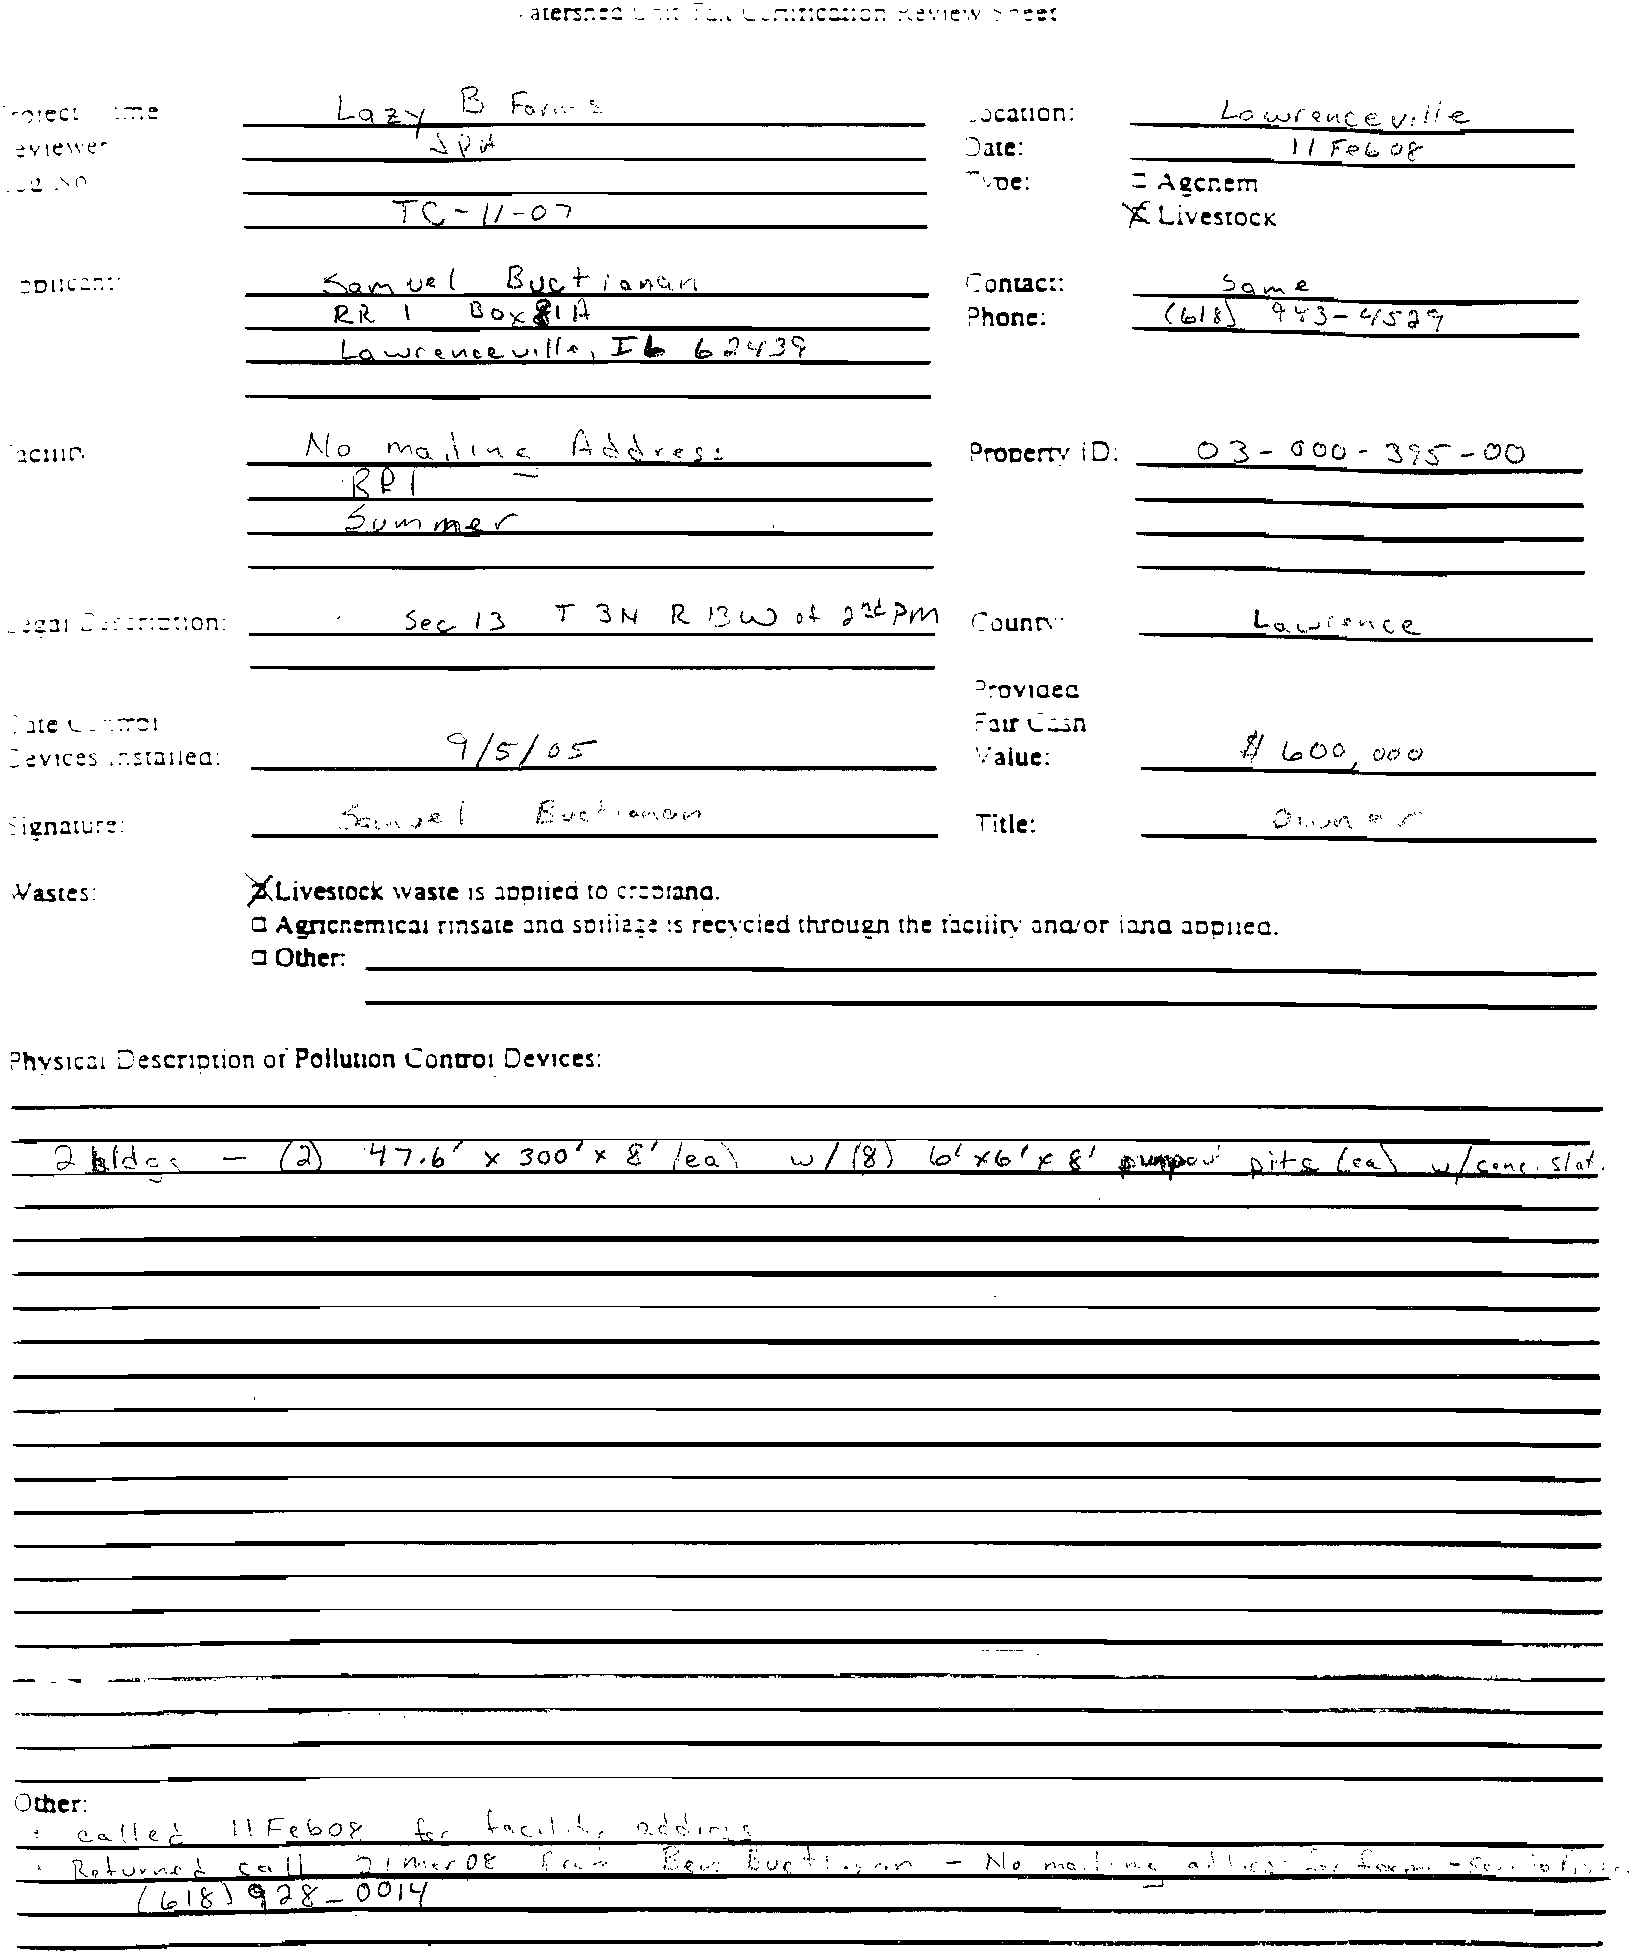 Watershed Unit Tax Certification Review Sheet
Project Name Lazy B Farms Location: Lawrenceville
Reviewer JPH Date: 11 Feb 08
Log No. Type: □ Agchem
TC-11-07 Livestock
Applicant: Samuel Buctianan Contact: Same
RR 1 Box 81A Phone: (618) 943-4529
Lawrenceville, IL 62439
Facility No mailing Address Property ID: 03-000-395-00
RR1
Summer
Legal Description: Sec 13 T 3N R 13W of 2nd PM County: Lawrence
Provided
Date Control Fair Cash
Devices Installed: 9/5/05 Value: $ 600,000
Signature: Samuel Buctianan Title: Owner
Wastes: Livestock waste is applied to cropland.
□ Agrichemical rinsate and spillage is recycled through the facility and/or land applied.
□ Other:
Physical Description of Pollution Control Devices:
2 bldgs - (2) 47.6' x 300' x 8' (ea) w/ (8) 6' x 6' x 8' pumpout pits (ea) w/conc. slat.
Other:
called 11 Feb 08 for facility address
Returned call 21 Mar 08 from Buctianan - No mailing address for farm -
(618) 928-0014